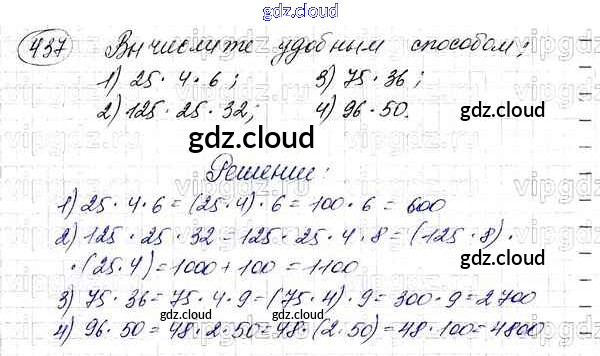 gdz.cloud
437 Вычислите удобным способом:
1) 25 · 4 · 6; 3) 75 · 36;
2) 125 · 25 · 32; 4) 96 · 50.
gdz.cloud
gdz.cloud
Решение:
1) 25 · 4 · 6 = (25 · 4) · 6 = 100 · 6 = 600
2) 125 · 25 · 32 = 125 · 25 · 4 · 8 = (125 · 8) ·
· (25 · 4) = 1000 + 100 = 1100
gdz.cloud
3) 75 · 36 = 75 · 4 · 9 = (75 · 4) · 9 = 300 · 9 = 2700
4) 96 · 50 = 48 · 2 · 50 = 48 · (2 · 50) = 48 · 100 = 4800
gdz.cloud